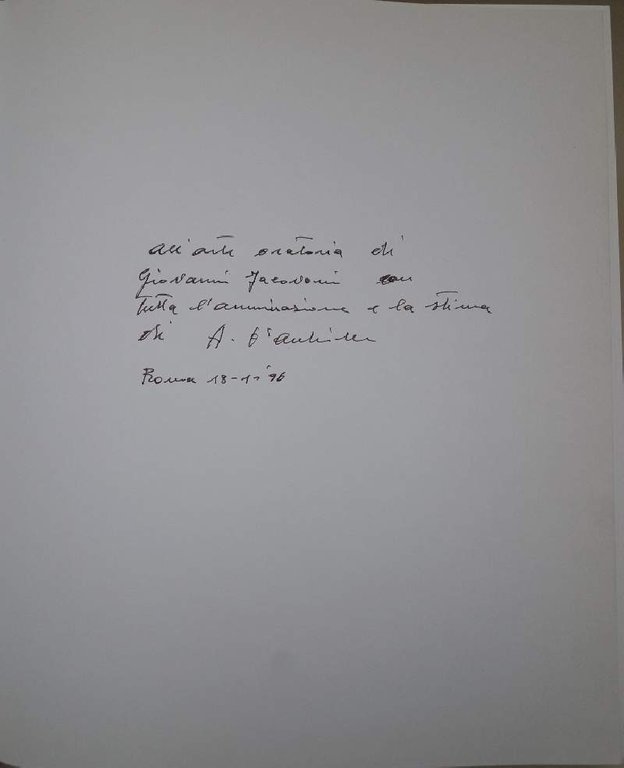 all'arte oratoria di
Giovanni Jacovoni con
tutta l'ammirazione e la stima
di A. D'
Roma 18-1-'96